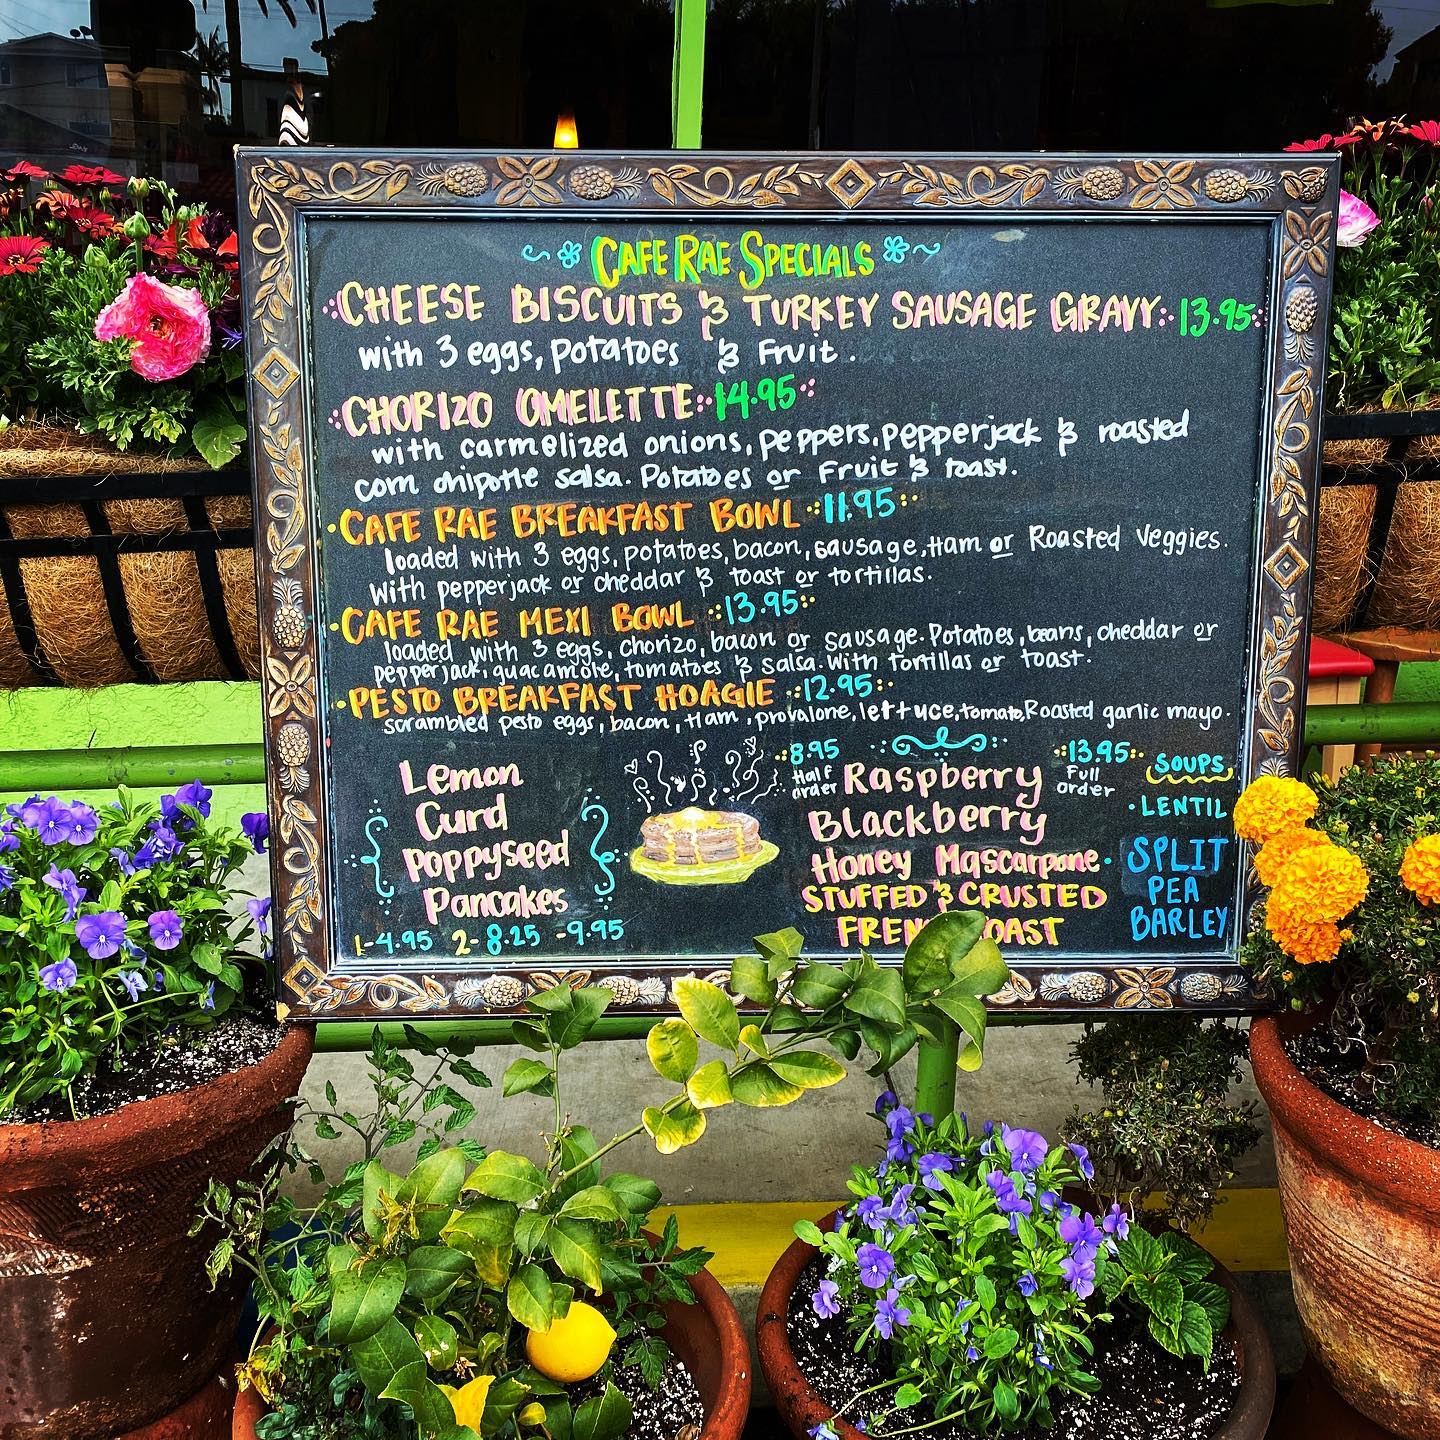 CAFE RAE SPECIALS
CHEESE BISCUITS & TURKEY SAUSAGE GRAVY 13.95
with 3 eggs, potatoes & Fruit.
CHORIZO OMELETTE 14.95
with carmelized onions, peppers, pepperjack & roasted
corn chipotle salsa. Potatoes or Fruit & toast.
CAFE RAE BREAKFAST BOWL 11.95
loaded with 3 eggs, potatoes, bacon, sausage, Ham or Roasted Veggies.
With pepperjack or cheddar & toast or tortillas.
CAFE RAE MEXI BOWL 13.95
loaded with 3 eggs, chorizo, bacon or sausage. Potatoes, beans, cheddar or
pepperjack, guacamole, tomatoes & salsa. With tortillas or toast.
PESTO BREAKFAST HOAGIE 12.95
scrambled pesto eggs, bacon, Ham, provalone, lettuce, tomato, Roasted garlic mayo.
Lemon
Curd
Poppyseed
Pancakes
1-4.95 2-8.25 -9.95
8.95
Half
order
13.95
Full
order
Raspberry
Blackberry
Honey Mascarpone
STUFFED & CRUSTED
FRENCH TOAST
SOUPS
LENTIL
SPLIT
PEA
BARLEY